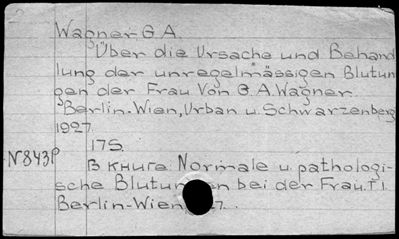 Wagner G. A.
Über die Ursache und Behand
lung der unregelmässigen Blutun
gen der Frau Von G. A. Wagner.
Berlin-Wien, Urban u. Schwarzenberg
1927.
17S.
N843P В книге Normale u. pathologi-
sche Blutungen bei der Frau. T 1.
Berlin-Wien 27.